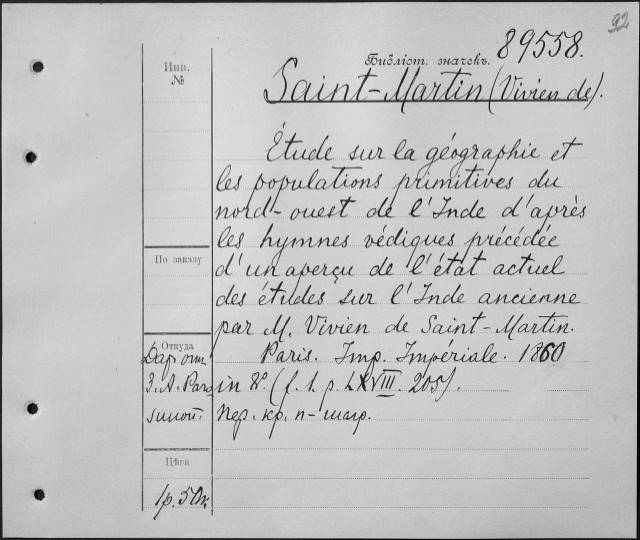 92
Инв.
№
Библіот. значекъ.
89558.
Saint-Martin (Vivien de).
Étude sur la géographie et
les populations primitives du
nord-ouest de l'Inde d'après
les hymnes védiques précédée
d'un aperçu de l'état actuel
des études sur l'Inde ancienne
par M. Vivien de Saint-Martin.
Paris. Imp. Impériale. 1860
in 8º. (f. t. p. LXVIII. 205).
Пер. кр. п-шагр.
По заказу
Откуда
Дар от
З. А. Раго
зиной.
Цѣна
1р. 50к